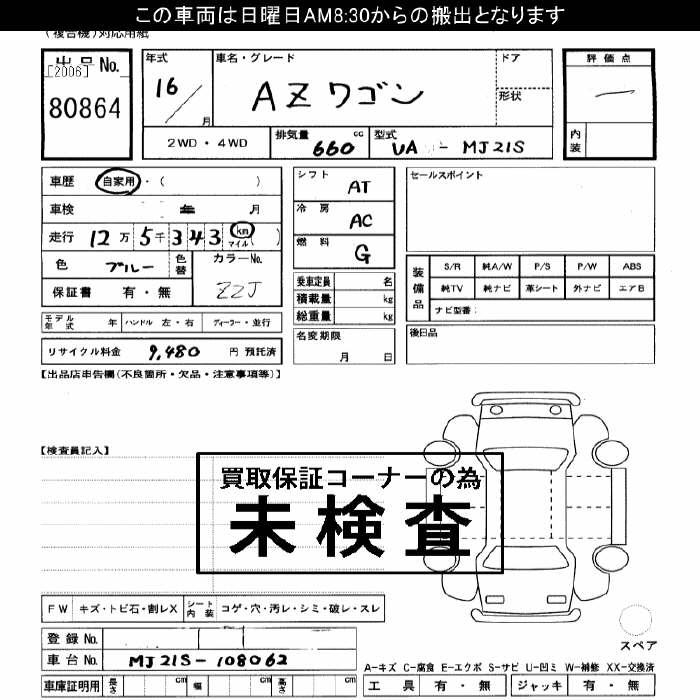 この車両は日曜日AM8:30からの搬出となります
(複合機)対応用紙
出品No.
[2006]
80864
年式
16 / 月
車名・グレード
AZワゴン
ドア
形状
評価点
内装
2WD・4WD
排気量 660 cc
型式 UA - MJ21S
車歴 自家用・( )
車検 年 月
走行 12万5千343 km マイル ( )
色 ブルー 色替
カラーNo. ZZJ
保証書 有・無
モデル年式 年 ハンドル 左・右 ディーラー・並行
リサイクル料金 9,480 円 預託済
シフト AT
冷房 AC
燃料 G
乗車定員 名
積載量 kg
総重量 kg
名変期限
月 日
セールスポイント
装備品
S/R 純A/W P/S P/W ABS
純TV 純ナビ 革シート 外ナビ エアB
ナビ型番:
後日品
【出品店申告欄(不良箇所・欠品・注意事項等)】
【検査員記入】
買取保証コーナーの為
未検査
FW キズ・トビ石・割レX シート内装 コゲ・穴・汚レ・シミ・破レ・スレ
登録No.
車台No. MJ21S-108062
車庫証明用 長さ cm 幅 cm 高さ cm
スペア
A-キズ C-腐食 E-エクボ S-サビ U-凹ミ W-補修 XX-交換済
工具 有・無 ジャッキ 有・無